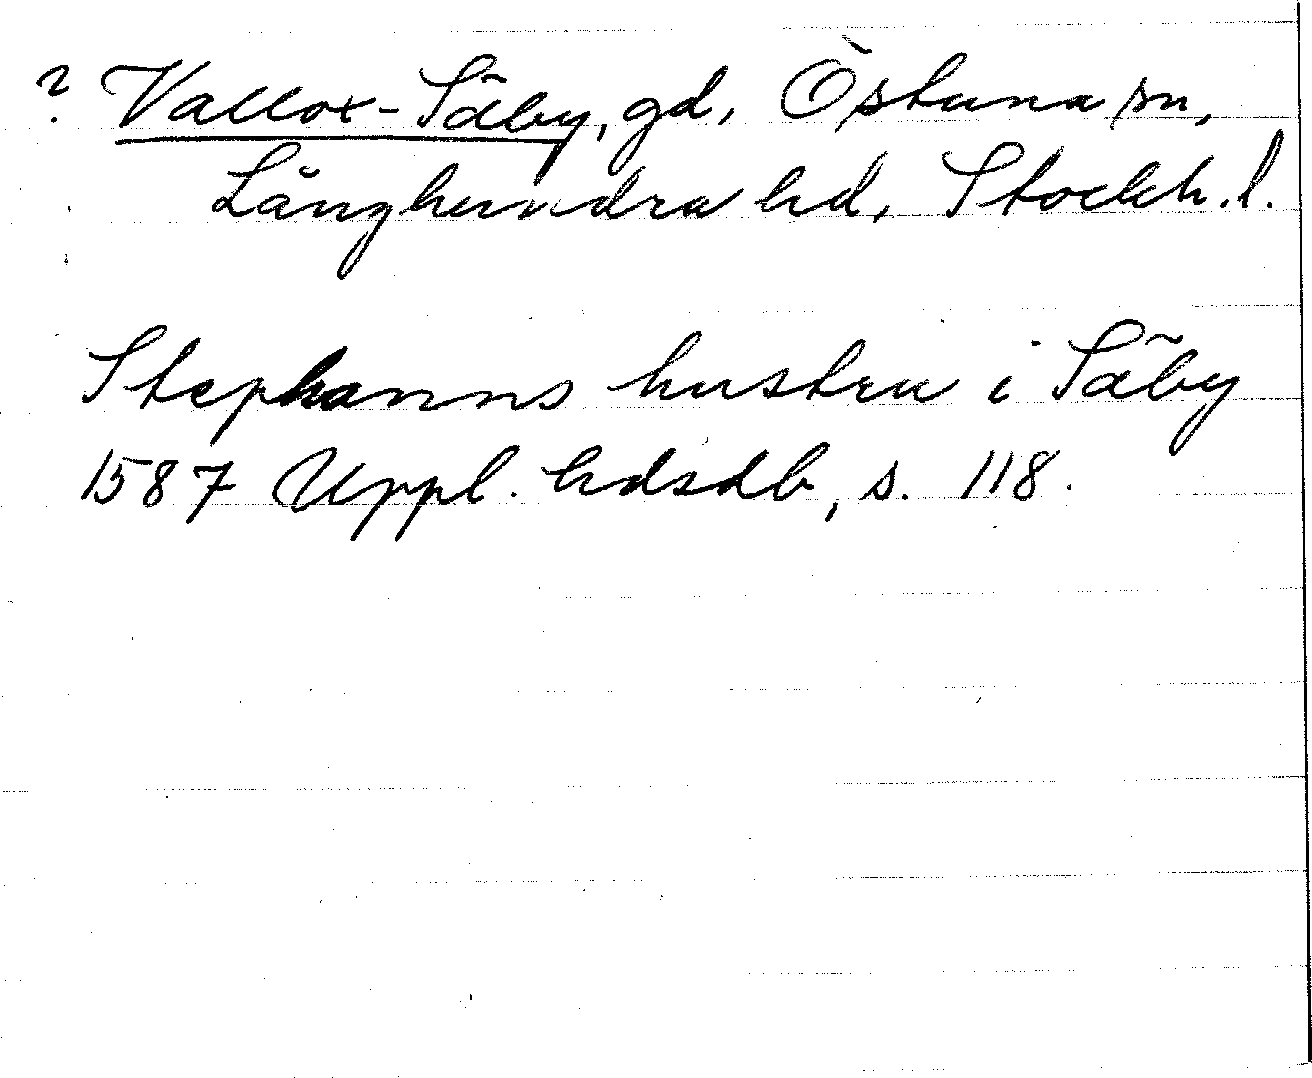 ? Vallox-Säby, gd, Östuna sn,
Långhundra hd, Stockh. l.
Stephanns hustru i Säby
1587 Uppl. hdsdb, s. 118.